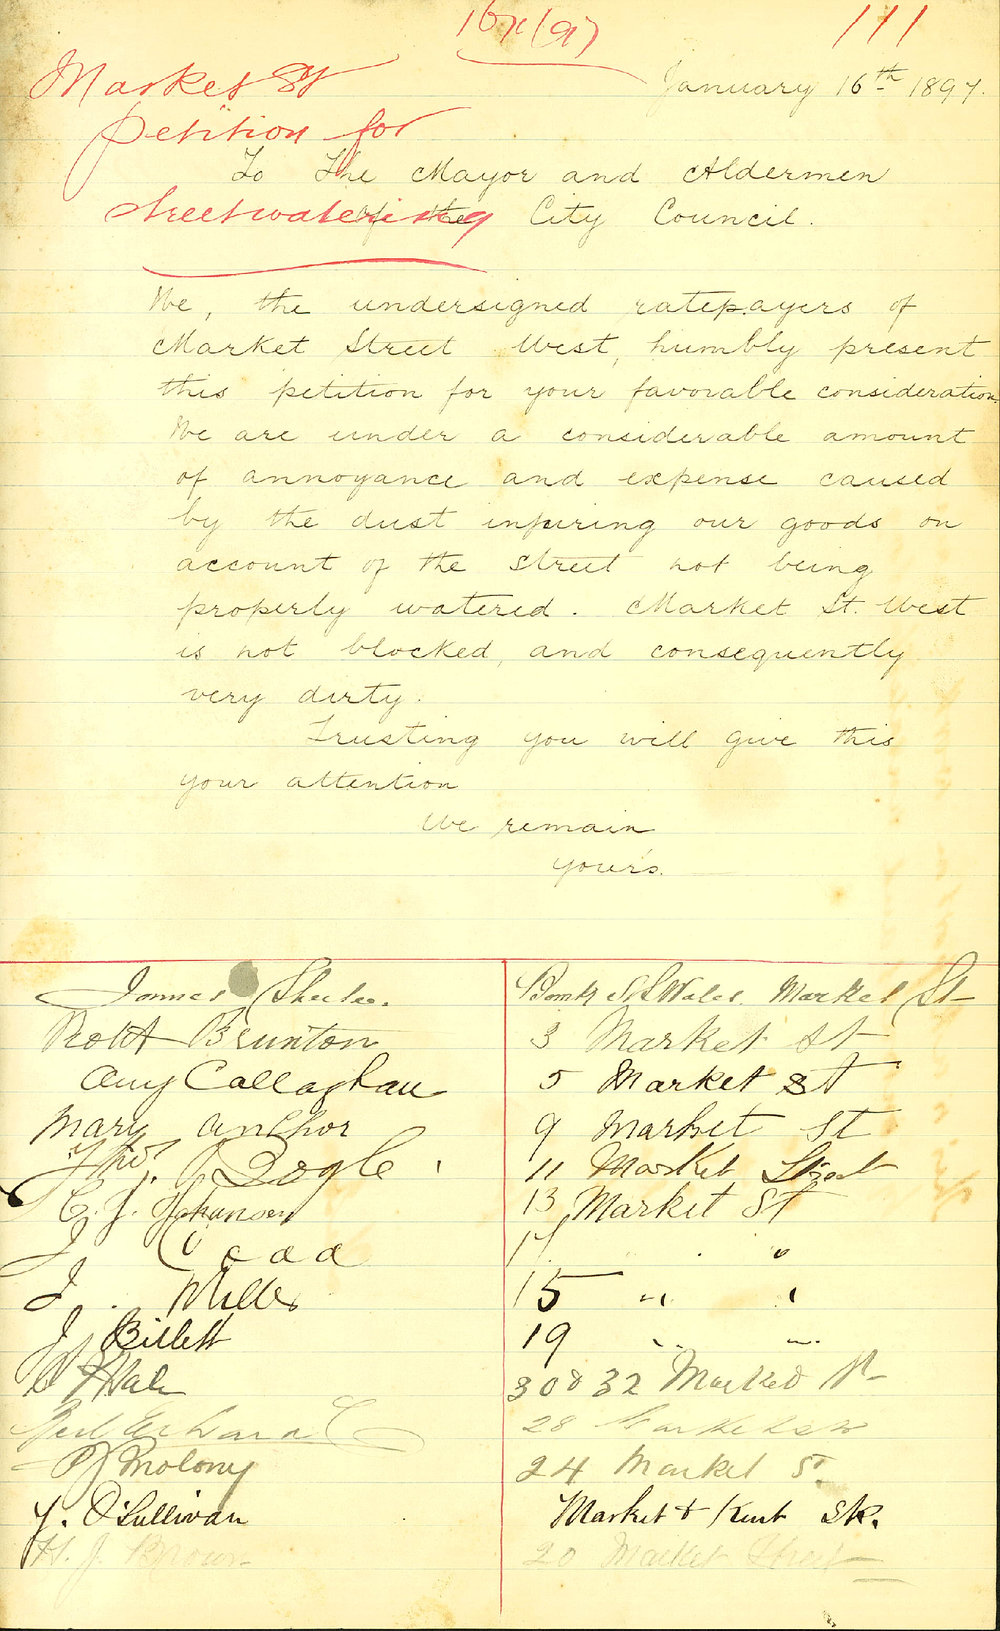 111
Market St
January 16th 1897.
petition for
To The Mayor and Aldermen
streetwatering
of the City Council.
We, the undersigned ratepayers of
Market Street West, humbly present
this petition for your favorable consideration.
We are under a considerable amount
of annoyance and expense caused
by the dust injuring our goods on
account of the Street not being
properly watered. Market St. West
is not blocked, and consequently
very dirty.
Trusting you will give this
your attention
We remain
your's.
James Bank N S Wales. Market St
Robt Brunton 3 Market St
Amy Callaghan 5 Market St
Mary Anchor 9 Market St
Thos. J. Bogle. 11 Market Street
C. J. Johanson 13 Market St
J. 17 " "
J. Miller 15 " "
J Billett 19 " "
Hale 30 & 32 Market St
28 Market St
P J Molony 24 Market St.
Y. O'Sullivan Market & Kent Sts.
H. J. Brown 20 Market Street